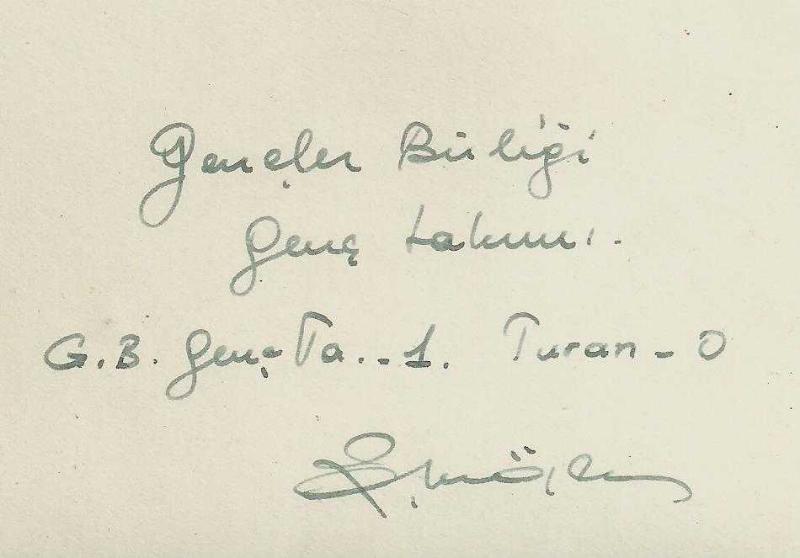 Gençler Birliği
Genç takımı.
G.B. Genç Ta.-1. Turan-0